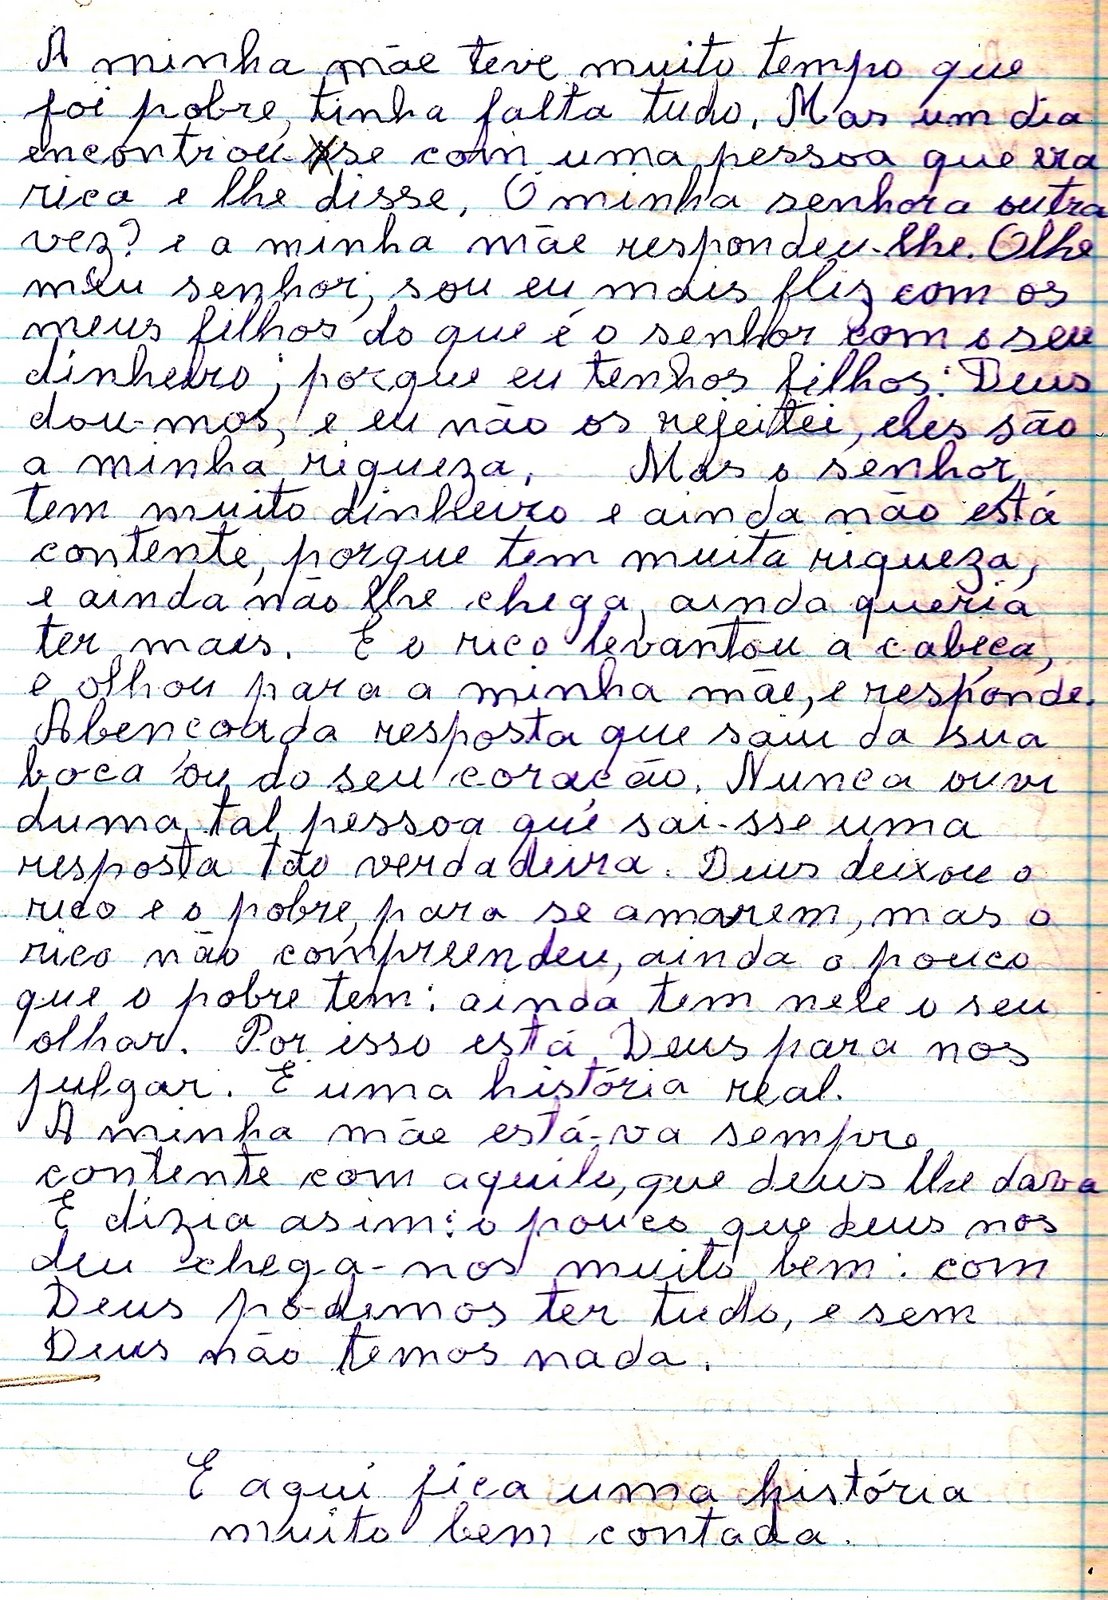 A minha mãe teve muito tempo que
foi pobre, tinha falta tudo. Mas um dia
encontrou-se com uma pessoa que era
rica e lhe disse, Ó minha senhora outra
vez? e a minha mãe respondeu-lhe. Olhe
meu senhor, sou eu mais fliz com os
meus filhos do que é o senhor com o seu
dinheiro; porque eu tenhos filhos: Deus
dou-mos, e eu não os rejeitei, eles são
a minha riqueza, Mas o senhor
tem muito dinheiro e ainda não está
contente, porque tem muita riqueza,
e ainda não lhe chega, ainda queria
ter mais. E o rico levantou a cabeça,
e olhou para a minha mãe, e responde.
Abençoada resposta que saiu da sua
boca ou do seu coração. Nunca ouvi
duma tal pessoa que sai-sse uma
resposta tão verdadeira. Deus deixou o
rico e o pobre, para se amarem, mas o
rico não compreendeu, ainda o pouco
que o pobre tem: ainda tem nele o seu
olhar. Por isso está Deus para nos
julgar. E uma história real.
A minha mãe está-va sempre
contente com aquilo, que deus lhe dava
E dizia asim: o pouco que deus nos
deu chega-nos muito bem: com
Deus po-demos ter tudo, e sem
Deus não temos nada.
E aqui fica uma história
muito bem contada.